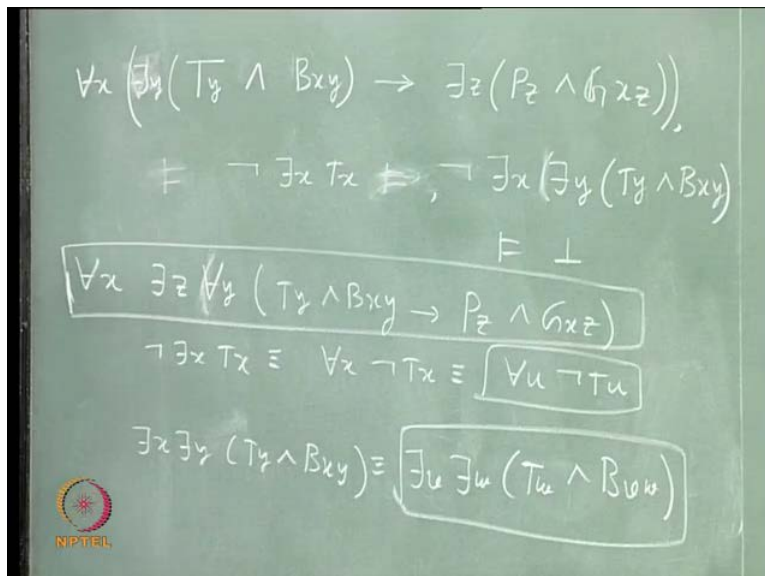 ∀x (∃y(Ty ∧ Bxy) → ∃z (Pz ∧ Gxz)),
⊨ ¬ ∃x Tx ⊨, ¬ ∃x (∃y (Ty ∧ Bxy)
⊨ ⊥
∀x ∃z ∀y (Ty ∧ Bxy → Pz ∧ Gxz)
¬∃x Tx ≡ ∀x ¬Tx ≡ ∀u ¬Tu
∃x∃y (Ty ∧ Bxy) ≡ ∃v ∃w (Tw ∧ Bvw)
NPTEL